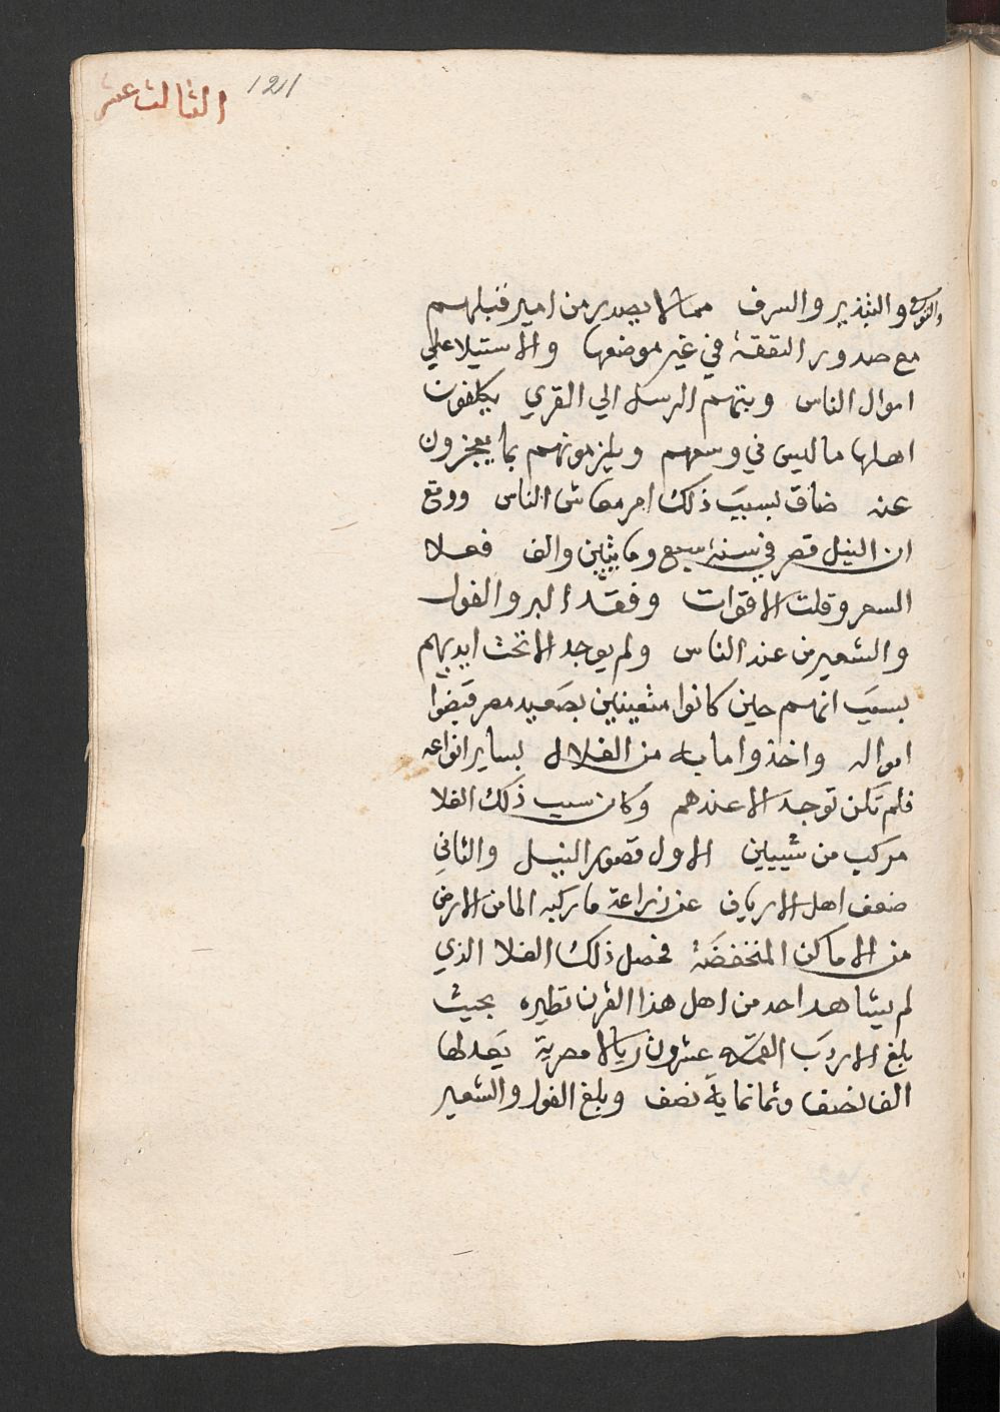 الثالث عشر
121
والتبذير والسرف مما لا يصدر من امير قبلهم
مع صدور النفقة في غير موضعها والاستيلا علي
اموال الناس وبثهم الرسل الي القري يكلفون
اهلها ما ليس في وسعهم ويلزمونهم بما يعجزون
عنه ضاق بسبب ذلك امر معاش الناس ووقع
ان النيل قصر في سنة سبع ومايتين والف فعلا
السعر وقلت الاقوات وفقد البر والفول
والشعير من عند الناس ولم يوجد الا تحت ايديهم
بسبب انهم حين كانوا متعينين بصعيد مصر قبضوا
امواله واخذوا ما به من الغلال بساير انواعه
فلم تكن توجد الا عندهم وكان سبب ذلك الغلا
مركب من شييين الاول قصور النيل والثاني
ضعف اهل الارياف عن زراعة ما ركبه الما من الارض
من الاماكن المنخفضة فحصل ذلك الغلا الذي
لم يشاهد احد من اهل هذا القرن نظيره بحيث
بلغ الاردب القمح عشرون ريالا مصرية يعدلها
الف نصف وثمانماية نصف وبلغ الفول والشعير